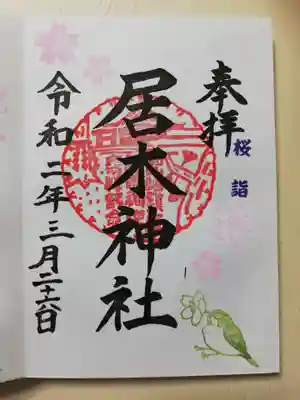 奉拝
桜詣
居木神社
令和二年三月二十六日